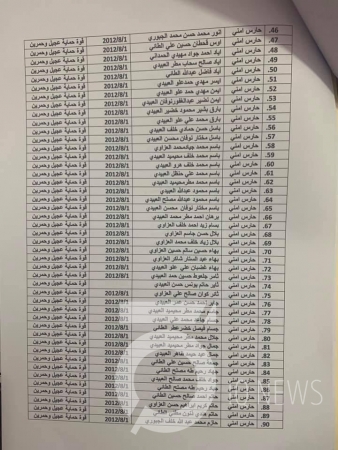 46. حارس امني انور محمد حسن محمد الجبوري 2012/8/1 قوة حماية عجيل وحمرين
47. حارس امني اوس قحطان حسين علي الطائي 2012/8/1 قوة حماية عجيل وحمرين
48. حارس امني اياد احمد جواد مهدي الحمداني 2012/8/1 قوة حماية عجيل وحمرين
49. حارس امني اياد صالح سحاب مطر العبيدي 2012/8/1 قوة حماية عجيل وحمرين
50. حارس امني اياد فاضل عبدالله الطائي 2012/8/1 قوة حماية عجيل وحمرين
51. حارس امني ايسر مهدي حمد علو العبيدي 2012/8/1 قوة حماية عجيل وحمرين
52. حارس امني ايمن مهدي حمد علو العبيدي 2012/8/1 قوة حماية عجيل وحمرين
53. حارس امني ايمن نصير عبدالغفور العبيدي 2012/8/1 قوة حماية عجيل وحمرين
54. حارس امني بارق بشير محمود خضر العبيدي 2012/8/1 قوة حماية عجيل وحمرين
55. حارس امني بارق محمد علي علو العبيدي 2012/8/1 قوة حماية عجيل وحمرين
56. حارس امني باسل حسن حمادي خلف العبيدي 2012/8/1 قوة حماية عجيل وحمرين
57. حارس امني باسل مختار محسن العبيدي 2012/8/1 قوة حماية عجيل وحمرين
58. حارس امني باسم محمد العزاوي 2012/8/1 قوة حماية عجيل وحمرين
59. حارس امني باسم محمد خلف محيميد العبيدي 2012/8/1 قوة حماية عجيل وحمرين
60. حارس امني باسم محمد خلف العبيدي 2012/8/1 قوة حماية عجيل وحمرين
61. حارس امني باسم محمد علي العبيدي 2012/8/1 قوة حماية عجيل وحمرين
62. حارس امني باسم محمد مطر محيميد العبيدي 2012/8/1 قوة حماية عجيل وحمرين
63. حارس امني باسم محمود عبدالله العبيدي 2012/8/1 قوة حماية عجيل وحمرين
64. حارس امني باسم محمود عبدالله مصلح العبيدي 2012/8/1 قوة حماية عجيل وحمرين
65. حارس امني باسم مختار محسن العبيدي 2012/8/1 قوة حماية عجيل وحمرين
66. حارس امني برهان احمد مطر محمد العبيدي 2012/8/1 قوة حماية عجيل وحمرين
67. حارس امني بسام زيد احمد خلف العزاوي 2012/8/1 قوة حماية عجيل وحمرين
68. حارس امني بلال حسن جاسم العزاوي 2012/8/1 قوة حماية عجيل وحمرين
69. حارس امني بلال زياد خلف محمد العزاوي 2012/8/1 قوة حماية عجيل وحمرين
70. حارس امني بهاء حسين سالم حسين العزاوي 2012/8/1 قوة حماية عجيل وحمرين
71. حارس امني بهاء عبد الستار شاكر العزاوي 2012/8/1 قوة حماية عجيل وحمرين
72. حارس امني بهاء غضبان علي علو العبيدي 2012/8/1 قوة حماية عجيل وحمرين
73. حارس امني ثامر حسين حمد العبيدي 2012/8/1 قوة حماية عجيل وحمرين
74. حارس امني ثاير حاتم يونس حسن العبيدي 2012/8/1 قوة حماية عجيل وحمرين
75. حارس امني ثائر صالح علي العزاوي 2012/8/1 قوة حماية عجيل وحمرين
76. حارس امني احمد حسن العبيدي 2012/8/1 قوة حماية عجيل وحمرين
77. حارس امني جاسم محمد مطر محيميد العبيدي 2012/8/1 قوة حماية عجيل وحمرين
78. حارس امني محمد علي العبيدي 2012/8/1 قوة حماية عجيل وحمرين
79. حارس امني جسام فيصل خضر الطائي 2012/8/1 قوة حماية عجيل وحمرين
80. حارس امني جلال محمد مطر محيميد العبيدي 2012/8/1 قوة حماية عجيل وحمرين
81. حارس امني جمال مطر محيميد العبيدي 2012/8/1 قوة حماية عجيل وحمرين
82. حارس امني جمال عبد حميد العبيدي 2012/8/1 قوة حماية عجيل وحمرين
83. حارس امني صالح حسين علي الطائي 2012/8/1 قوة حماية عجيل وحمرين
84. حارس امني طه مصلح الطائي 2012/8/1 قوة حماية عجيل وحمرين
85. حارس امني خلف محمد صالح العبيدي 2012/8/1 قوة حماية عجيل وحمرين
86. حارس امني طه مصلح الطائي 2012/8/1 قوة حماية عجيل وحمرين
87. حارس امني حاتم صالح احمد حسين الطائي 2012/8/1 قوة حماية عجيل وحمرين
88. حارس امني حاتم كريم ابراهيم حسن العزاوي 2012/8/1 قوة حماية عجيل وحمرين
89. حارس امني حاتم الطائي 2012/8/1 قوة حماية عجيل وحمرين
90. حارس امني حازم محمد عبد الله خلف الجبوري 2012/8/1 قوة حماية عجيل وحمرين
NEWS